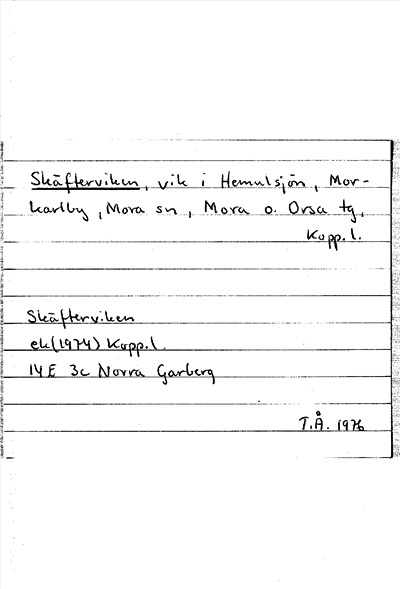 Skäfterviken, vik i Hemulsjön, Mor-
karlby, Mora sn, Mora o. Orsa tg,
Kopp.l.
Skäfterviken
ek(1974) Kopp.l.
14E 3c Norra Garberg
T.Å. 1976